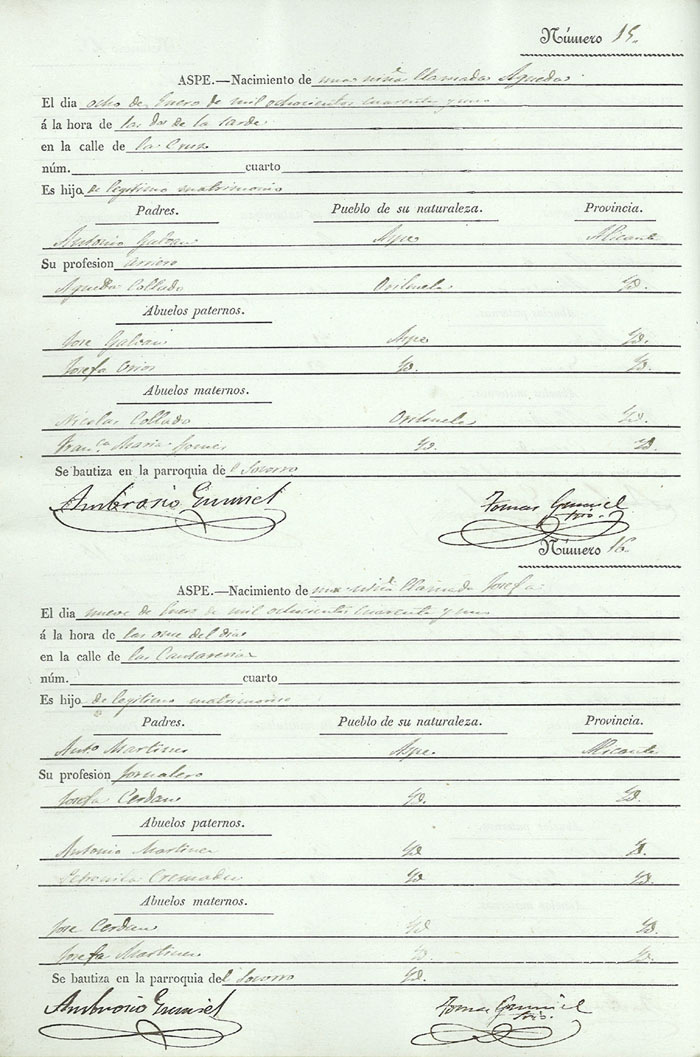 Número 15.
ASPE.—Nacimiento de una niña llamada Agueda
El dia ocho de Enero de mil ochocientos cuarenta y uno
á la hora de las dos de la tarde
en la calle de la Cruz
núm. cuarto
Es hijo de legitimo matrimonio
Padres. Pueblo de su naturaleza. Provincia.
Antonio Galvan Aspe Alicante
Su profesion arriero
Agueda Collado Orihuela Yd.
Abuelos paternos.
Jose Galvan Aspe Yd.
Josefa Yd. Yd.
Abuelos maternos.
Nicolas Collado Orihuela Yd.
Fran.ca Maria Gomes Yd. Yd.
Se bautiza en la parroquia del Socorro
Ambrosio
Tomas
Srio.
Número 16
ASPE.—Nacimiento de una niña llamada Josefa
El dia nueve de Enero de mil ochocientos cuarenta y uno
á la hora de las once del dia
en la calle de las
núm. cuarto
Es hijo de legitimo matrimonio
Padres. Pueblo de su naturaleza. Provincia.
Anto. Martinez Aspe Alicante
Su profesion Jornalero
Josefa Cerdan Yd. Yd.
Abuelos paternos.
Antonio Martinez Yd. Yd.
Petronila Cremades Yd. Yd.
Abuelos maternos.
Jose Cerdan Yd. Yd.
Josefa Martinez Yd. Yd.
Se bautiza en la parroquia del Socorro Yd.
Ambrosio
Tomas
Srio.